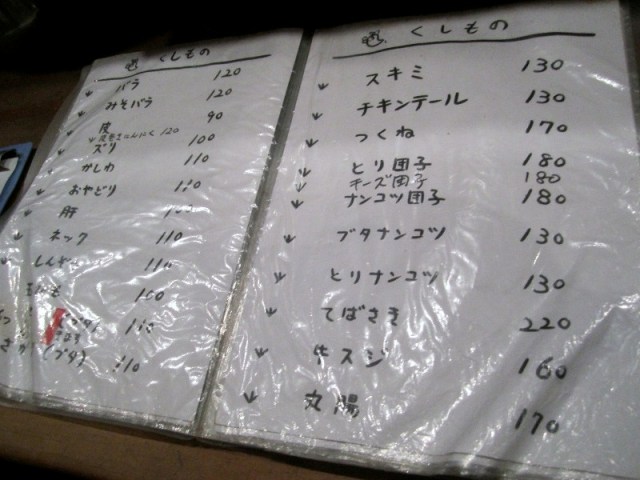 くしもの
バラ 120
みそバラ 120
皮 90
皮巻きにんにく 120
ズリ 100
かしわ 110
おやどり 110
肝 100
ネック 110
しんぞー 110
100
110
(ブタ) 110
くしもの
スキミ 130
チキンテール 130
つくね 170
とり団子 180
チーズ団子 180
ナンコツ団子 180
ブタナンコツ 130
とりナンコツ 130
てばさき 220
牛スジ 160
丸腸 170